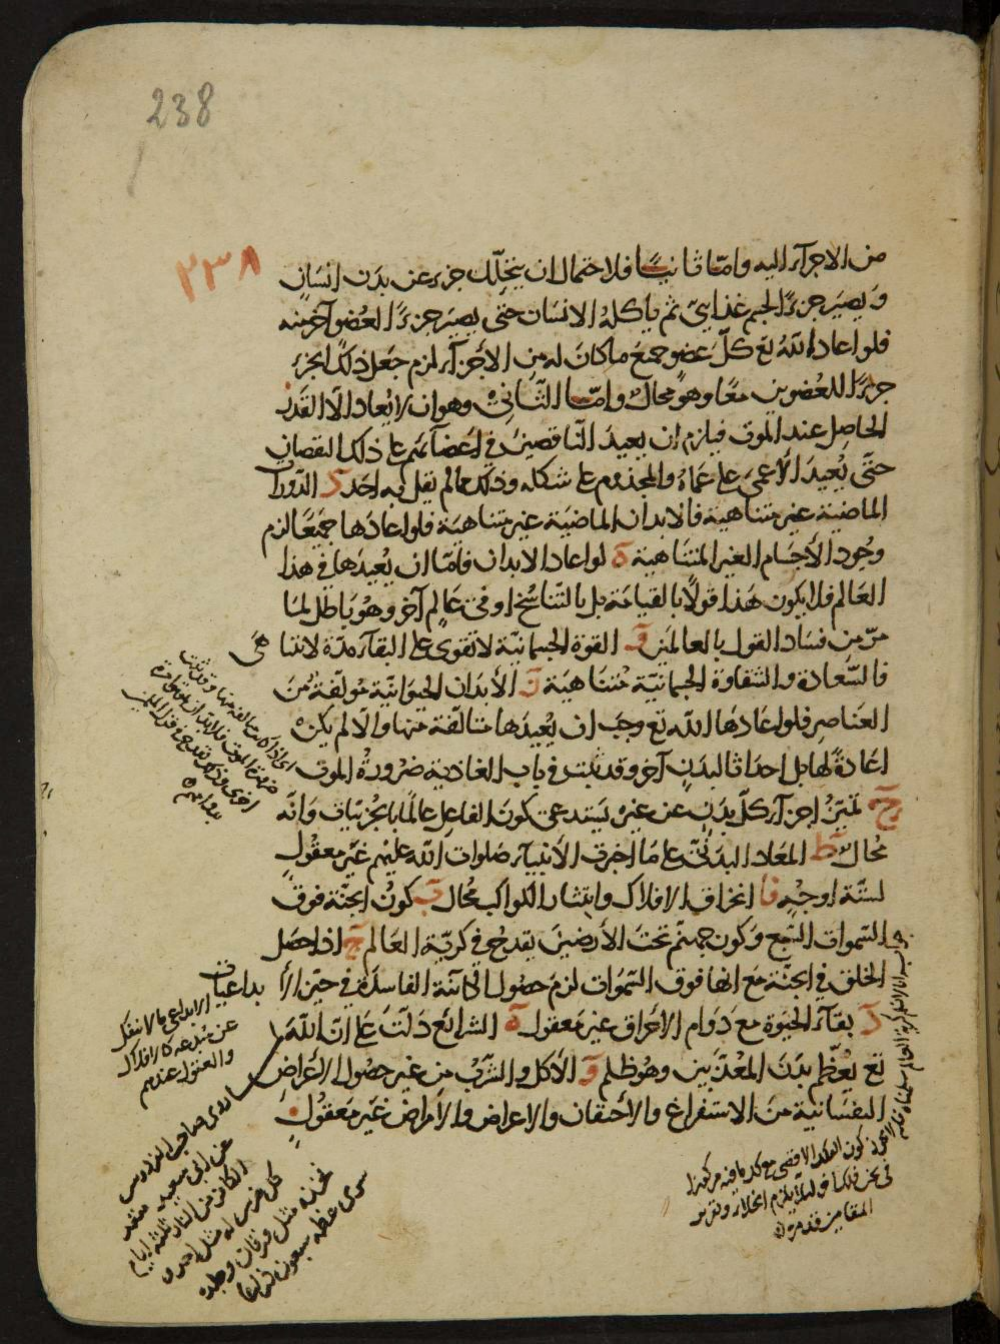 238
٢٣٨
من الاجزآء اليه وامّا ثانيًا فلاحتمال ان يتحلّل جزء عن بدن انسان
وَيصيَر جزءًا لجسم غذائىّ ثم ياكلهُ الانسَان حتّى يصيَر جزءًا لعُضو آخر منه
فلو اعاد اللهُ تع كلّ عضو جمعَ ما كانَ له من الأجزآء لزم جعل ذلك الجزء
جزءًا للعُضوين معًا وهو محال وامّا الثّانىْ وهو ان لا يُعاد الّا القَدرُ
الحاصِل عند الموت فيلزم ان يعيدَ النّاقصينَ فى اعضآئهم على ذلك النقصان
حتّى يُعيدَ الأعمىَ على عَماهُ والمجذوم على شكله وذلك مما لم يقل به احَد د الدّورات
الماضية غير متناهية فالابدان الماضيَة غير متناهيَة فلو اعادَها جميَعًا لزم
وجُود الأجسَام الغير المتنَاهية ه لو اعاد الابدان فامّا ان يُعيدَها فى هذا
العَالم فلا يكون هَذا قولًا بالقيامَة بل بالتّناسُخ او فى عَالم آخر وهْو بَاطل لمَا
مرّ من فسَاد القول بالعالمَين و القوة الجسمانيّة لا تقوى على البقآء مدّة لا تتناهَى
فالسّعادة والشقاوة الجسمانيّة متنَاهيَة ز الأبدَان الحيَوانيّة مؤلفَة مَن
العنَاصرِ فلو اعَادهَا الله تع وجبَ ان يُعيدَها متالّفة منها والّا لم يكن
اعَادةً لها بل احدَاثا لبدَنٍ آخر وقد ثبت فى باب الغاذية ضرورةُ الموت
ح تميّزُ اجزآء كلّ بدَنٍ عن غيرْ يَستدعى كونَ الفاعِل عالمًا بالجزئيات وَانّه
مُحال ط المعَاد البدَنىّ على مَا اخبرت الأنبيآء صَلوات اللهِ عليهم غيُر معقوُل
لستّة اوجُه ا انخراق الافلاك وانتثار الكواكب مُحال ب كونُ الجنّة فوقَ
السّموات السّبع وَكون جهنّم تحتَ الأرضينَ يقدحُ فى كريّة العَالم ج اذا حصَل
الخلق فى الجنّة مع انها فوق السّموَات لزمَ حصُول الكائنة الفاسدَة فى حيّز الإبداعيات
د بقآء الحيٰوة مع دَوام الاحَراق غير مَعقول ه الشرائع دَلتَ عَلى انّ اللهَ
تع يُعظّم بدَنَ المعْذَّبين وهُو ظلم و الأكل والشّربُ من غير حصُول الاعراض
النفسَانية منَ الاستفراغ والاحتقان والاعراض والأمراض غيَر مَعقول
الابداعى ما لا ينفكّ
عن مُبدعه كالافلاك
والعقول عندهم
روى صاحب الفردوس
عن ابى سعيد مقعد
الكافر من النار ثلثة ايام
كل ضرس له مثل احد و
فخذه مثل ورقان وجلده
سوى عظمه سبعون ذراعا